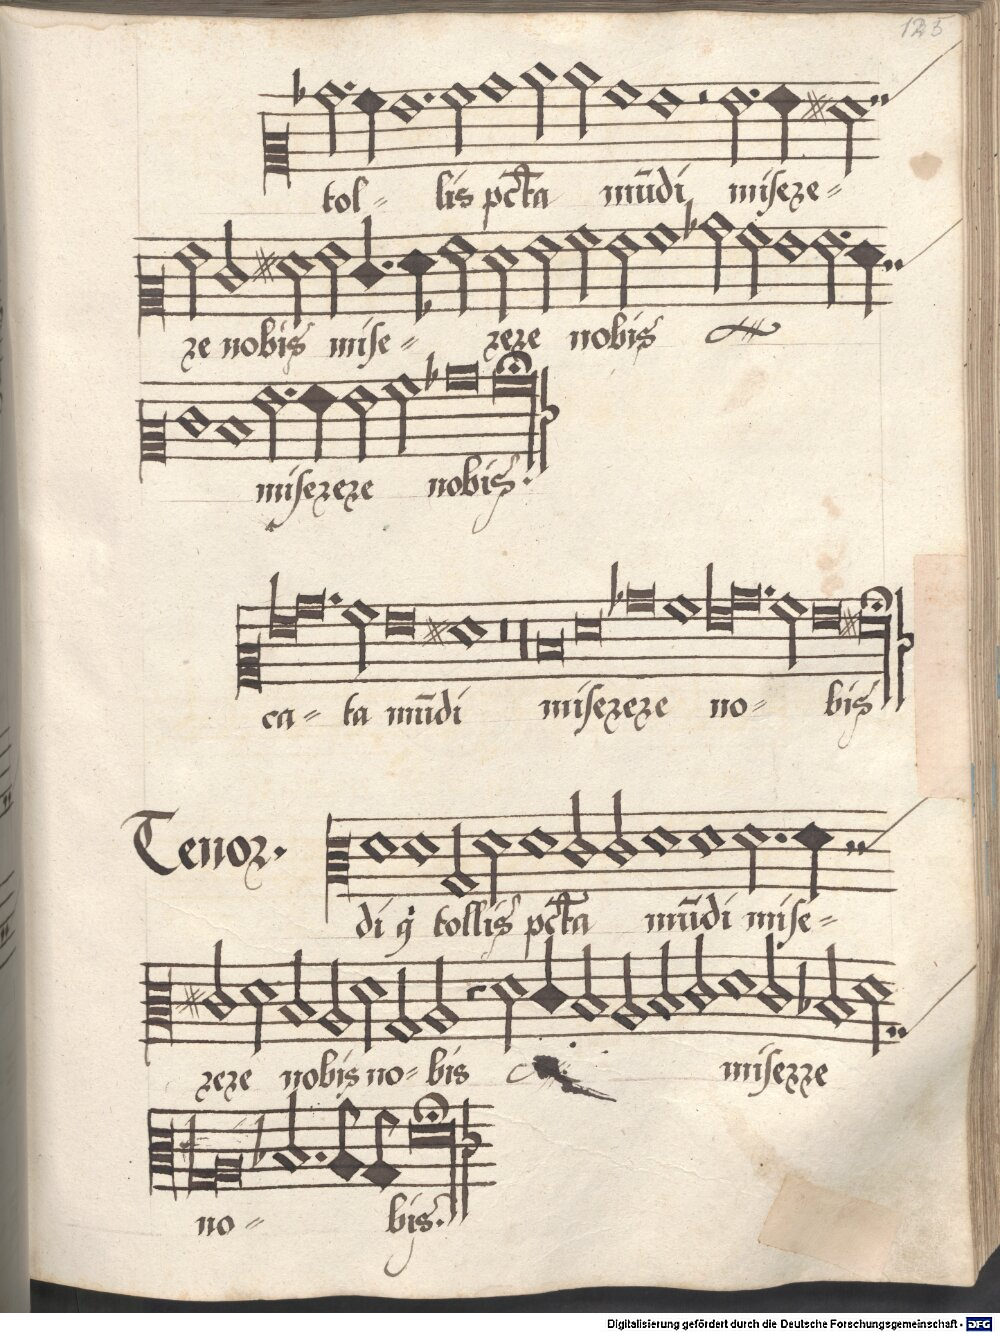 125
tol- lis pc̄ta mūdi misere-
re nobis mise- rere nobis
miserere nobis.
ca- ta mūdi miserere no- bis
Tenor.
di q̄ tollis pc̄ta mūdi mise-
rere nobis no- bis miserre
no- bis.
Digitalisierung gefördert durch die Deutsche Forschungsgemeinschaft - DFG